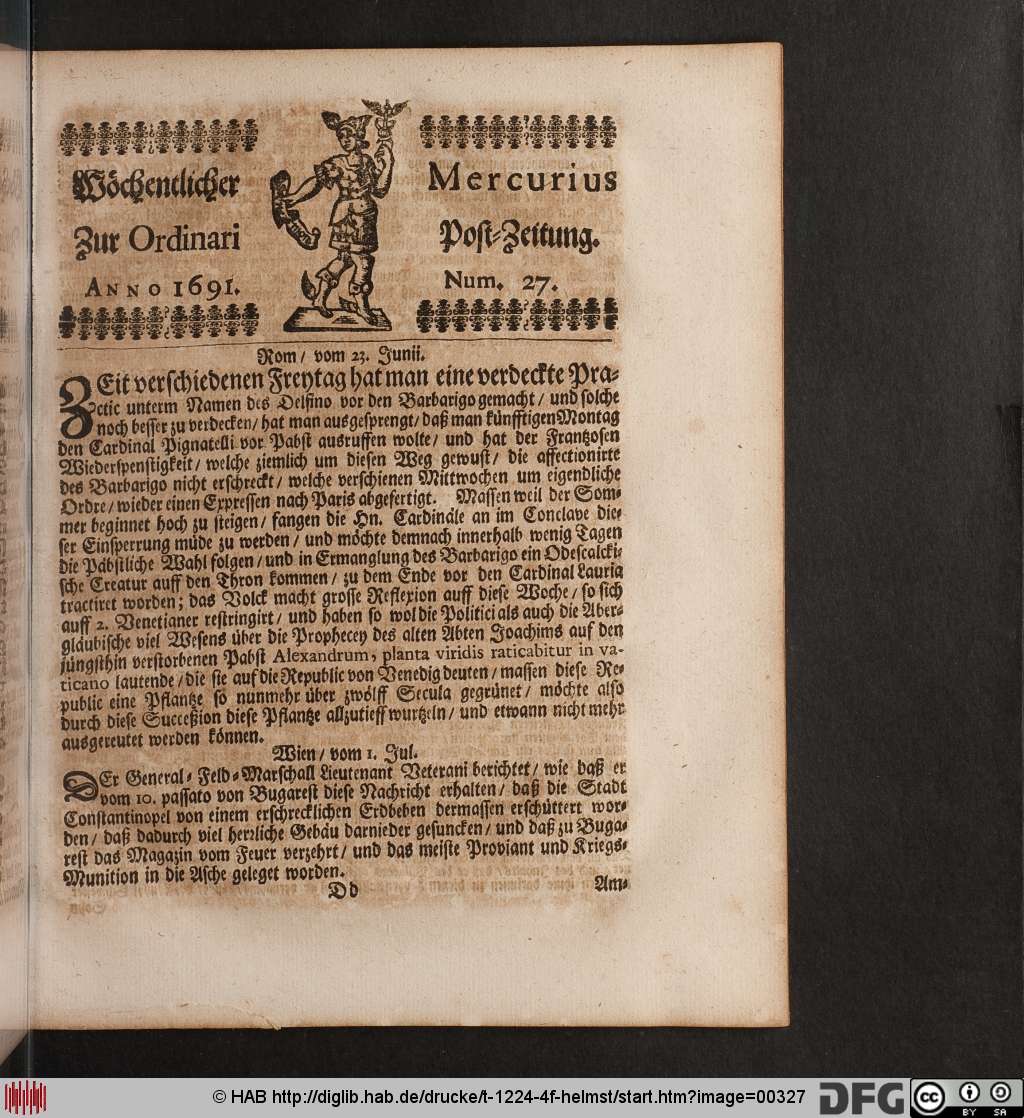 Wöchentlicher Mercurius
Zur Ordinari Post-Zeitung.
ANNO 1691. Num. 27.
Rom / vom 23. Junii.
ZEit verschiedenen Freytag hat man eine verdeckte Pra-
ctic unterm Namen des Delfino vor den Barbarigo gemacht / und solche
noch besser zu verdecken / hat man ausgesprengt / daß man künfftigen Montag
den Cardinal Pignatelli vor Pabst ausruffen wolte / und hat der Frantzosen
Wiederspenstigkeit / welche ziemlich um diesen Weg gewust / die affectionirte
des Barbarigo nicht erschreckt / welche verschienen Mittwochen um eigendliche
Ordre / wieder einen Expressen nach Paris abgefertigt. Massen weil der Som-
mer beginnet hoch zu steigen / fangen die Hn. Cardinäle an im Conclave die-
ser Einsperrung müde zu werden / und möchte demnach innerhalb wenig Tagen
die Päbstliche Wahl folgen / und in Ermanglung des Barbarigo ein Odescalcki-
sche Creatur auff den Thron kommen / zu dem Ende vor den Cardinal Lauria
tractiret worden; das Volck macht grosse Reflexion auff diese Woche / so sich
auff 2. Venetianer restringirt / und haben so wol die Politici als auch die Aber-
gläubische viel Wesens über die Prophecey des alten Abten Joachims auf den
jüngsthin verstorbenen Pabst Alexandrum, planta viridis raticabitur in va-
ticano lautende / die sie auf die Republic von Venedig deuten / massen diese Re-
public eine Pflantze so nunmehr über zwölff Secula gegrünet / möchte also
durch diese Succeßion diese Pflantze allzutieff wurtzeln / und etwann nicht mehr
ausgereutet werden können.
Wien / vom 1. Jul.
DEr General-Feld-Marschall Lieutenant Veterani berichtet / wie daß er
vom 10. passato von Bugarest diese Nachricht erhalten / daß die Stadt
Constantinopel von einem erschrecklichen Erdbeben dermassen erschüttert wor-
den / daß dadurch viel herzliche Gebäu darnieder gesuncken / und daß zu Buga-
rest das Magazin vom Feuer verzehrt / und das meiste Proviant und Kriegs-
Munition in die Asche geleget worden.
Dd Am-
© HAB http://diglib.hab.de/drucke/t-1224-4f-helmst/start.htm?image=00327 DFG cc BY SA